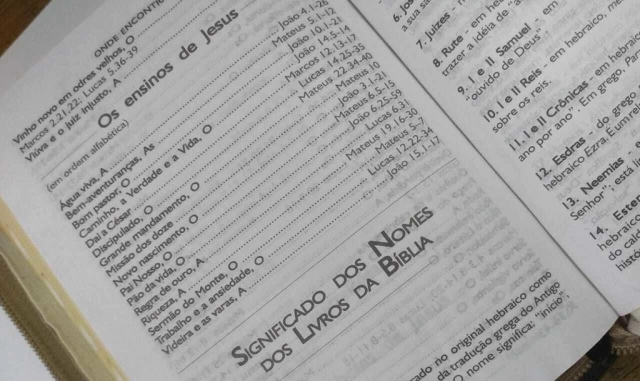 ONDE ENCONTR
Vinho novo em odres velhos, O
Marcos 2.21-22; Lucas 5.36-39
Viúva e o juiz injusto, A
Os ensinos de Jesus
(em ordem alfabética)
Água viva, A João 4.1-26
Bem-aventuranças, As Mateus 5.1-12
Bom pastor, O João 10.1-21
Caminho, a Verdade e a Vida, O João 14.5-14
Dai a César Marcos 12.13-17
Discipulado, O Lucas 14.25-35
Grande mandamento, O Mateus 22.34-40
Missão dos doze Mateus 10
Novo nascimento, O João 3.1-21
Pai Nosso, O Mateus 6.5-15
Pão da vida, O João 6.25-59
Regra de ouro, A Lucas 6.31
Riqueza, A Mateus 19.16-30
Sermão do Monte, O Mateus 5-7
Trabalho e a ansiedade, O Lucas 12.22-34
Videira e as varas, A João 15.1-17
SIGNIFICADO DOS NOMES
DOS LIVROS DA BÍBLIA
ado no original hebraico como
da tradução grega do Antigo
O nome significa: "início";
6. Jos
a sua sa
7. Juízes - n
8. Rute - em he
trazer a idéia de "a
9. I e II Samuel - em
ouvido de Deus"
10. I e II Reis - em hebraico, me
sobre os reis.
11. I e II Crônicas - em hebraic
ano por ano". Em grego, Par
12. Esdras - do grego
hebraico Ezra. É um
13. Neemias - e
Senhor"; está
14. Ester
hebrai
do cald
histó